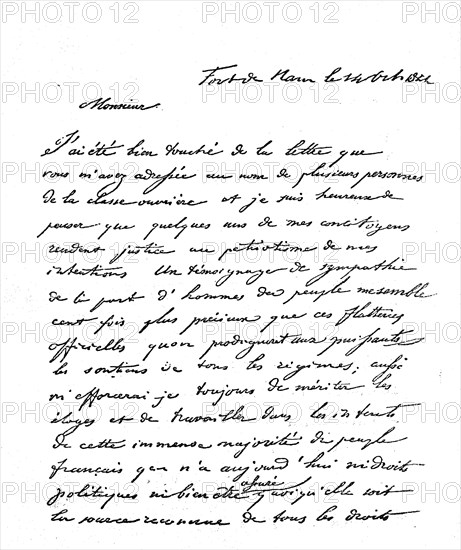 Fort de Ham le 14 Oct. 1844
Monsieur
J'ai été bien touché de la lettre que
vous m'avez adressée au nom de plusieurs personnes
de la classe ouvrière et je suis heureux de
penser que quelques uns de mes concitoyens
rendent justice au patriotisme de mes
intentions Un témoignage de sympathie
de la part d'hommes du peuple me semble
cent fois plus précieux que ces flatteries
officielles qu'on prodiguent aux puissants
les soutiens de tous les régimes; aussi
m'efforcerai je toujours de mériter les
éloges et de travailler dans les intérêts
de cette immense majorité du peuple
français qui n'a aujourd'hui ni droits
politiques ni bien être assuré quoiqu'elle soit
la source reconnue de tous les droits
PHOTO12